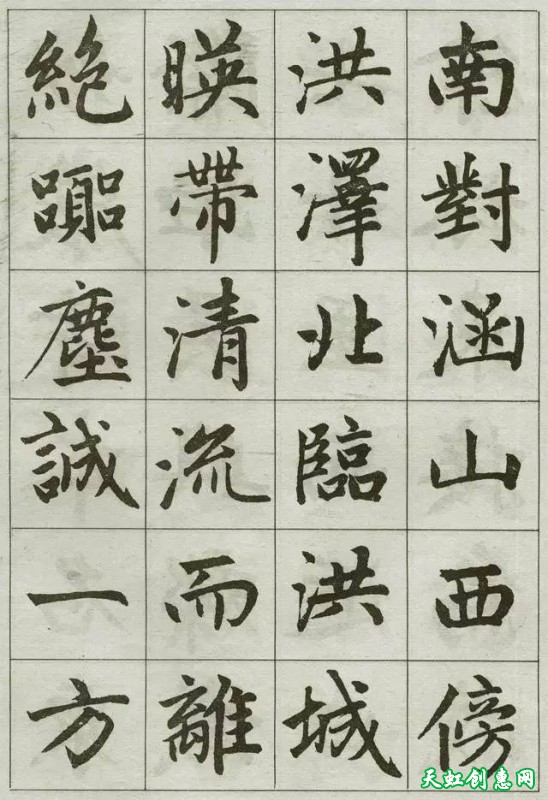 南對涵山西傍
洪澤北臨洪城
暎帶清流而離
絶囂塵誠一方
天虹创惠网